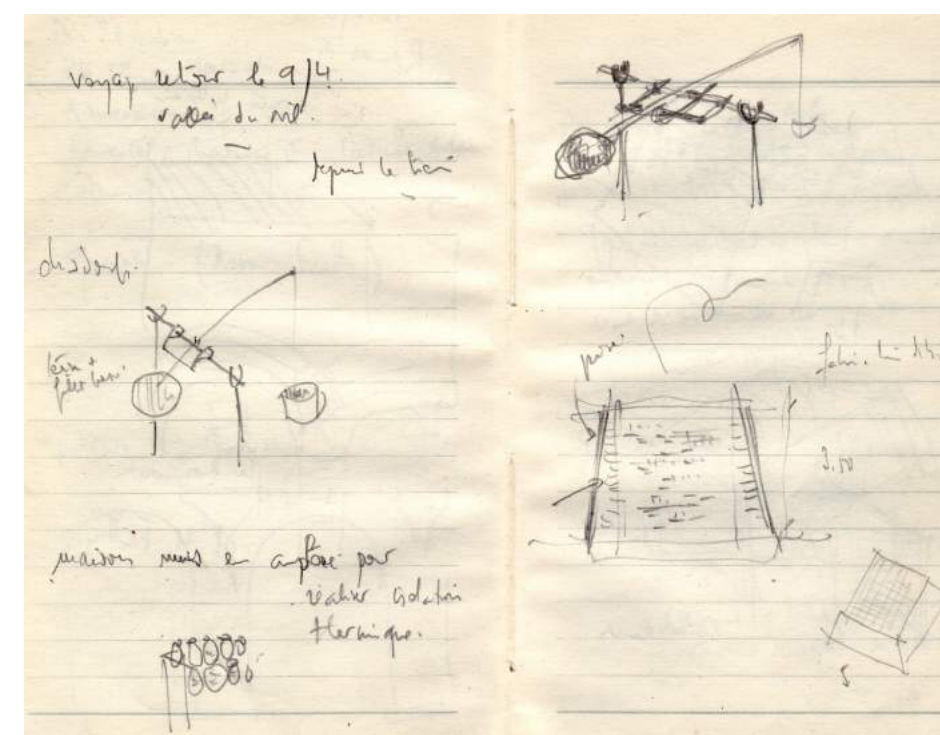 voyage retour le 9/4.
vallée du nil.
depuis le train
chadouf.
maisons murs en amphore pour
réaliser isolation
thermique.
3.50
5